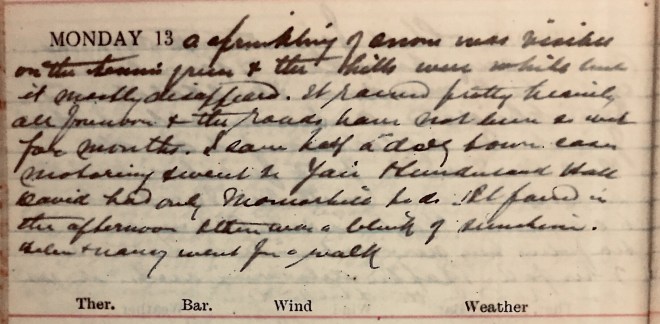 MONDAY 13 a sprinkling of snow was visible
on the tennis green & the hills were white but
it mostly disappeared. It rained pretty heavily
all forenoon & the roads have not been so wet
for months. I saw half a doz town cases
motoring & went to Yair & Sunderland Hall
David had only beds. It faired in
the afternoon & there was a blink of sunshine.
Helen & Nancy went for a walk
Ther. Bar. Wind Weather